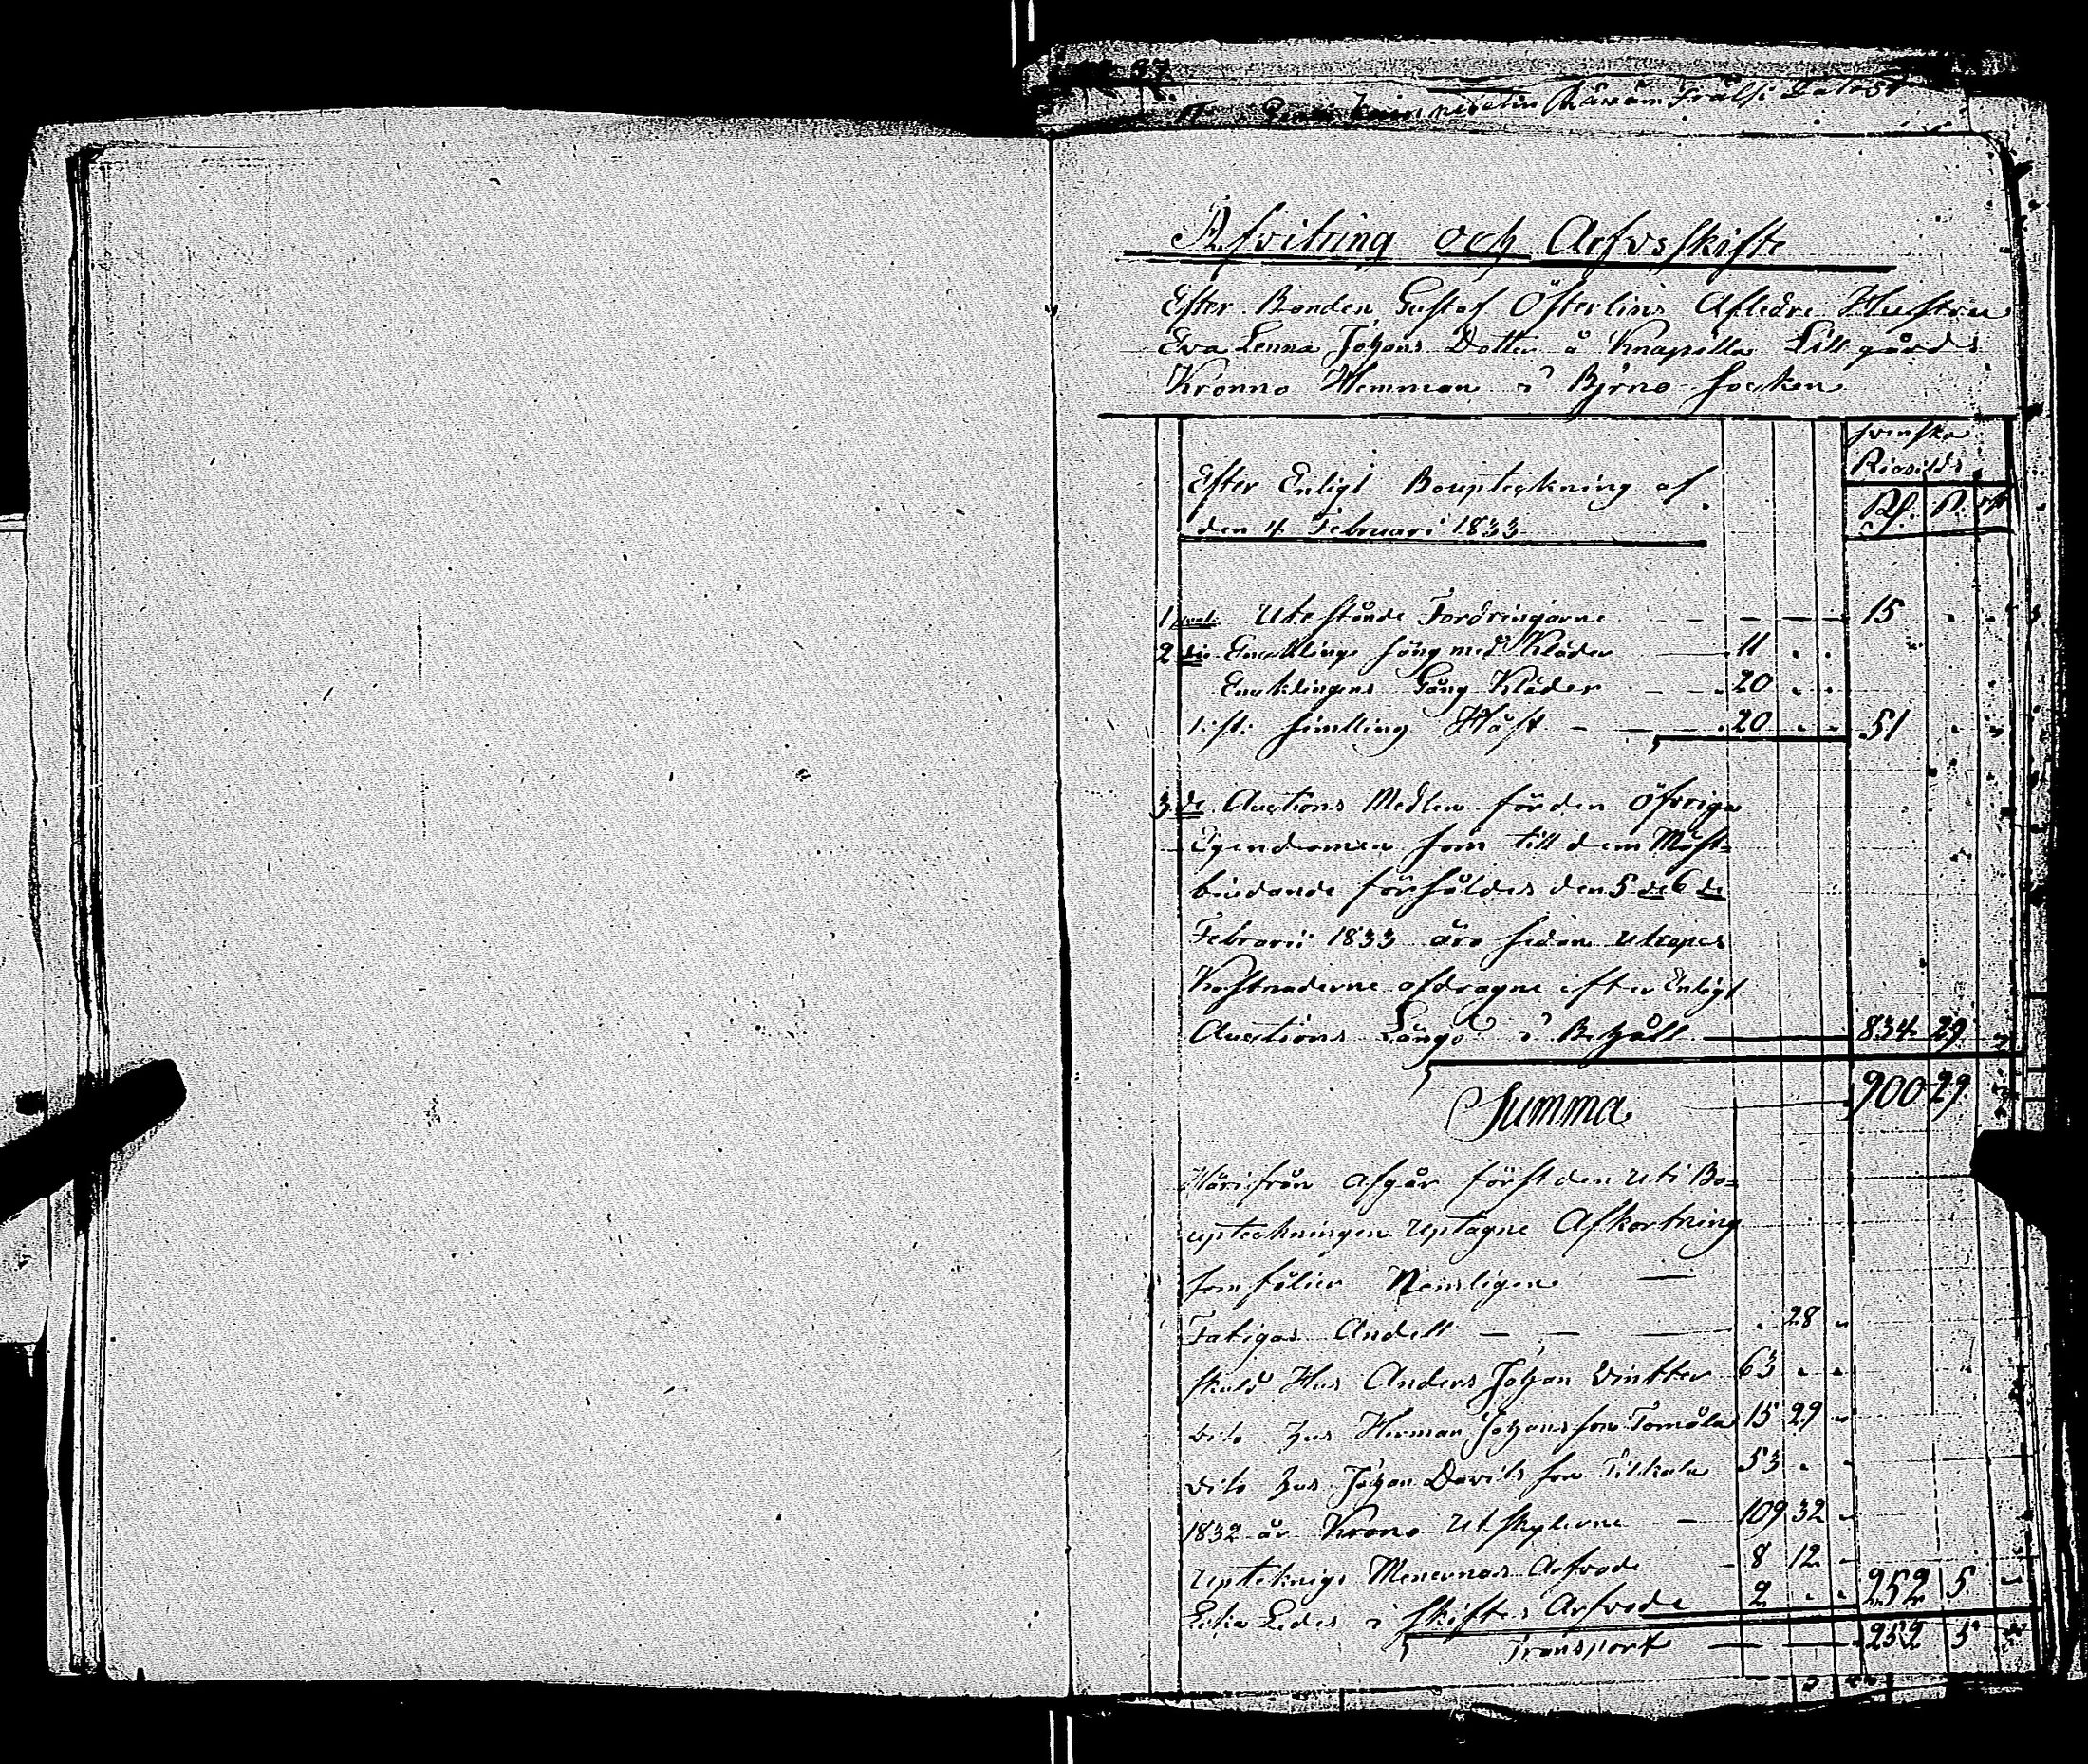 Afvitring och Arfvsskifte
Efter Bonden Gustaf Österlins Afledne Hustru
Eva Lenna Johans Dotter å Knapilla Lill gårds
Kronno Hemman i Bjerno socken
Svenska
Riksgilds
Efter Enligt Bouptekning af
den 4 Februari 1833
Rd. S. rst
1 Utestånde Fordringarne 15
2 Encklings säng med Kläder 11
Encklingens Gång Kläder 20
1: st: simlling Häst 20 51
3 de Auctions Medlen för den Öfvriga
Egendomen som till dem Mäst-
biudande försåldes den 5 de 6 de
Februarii 1833 äro sedan utrops
Kostnaderne afdragne efter Enligt
Auctions Längd i Behåll 834 29
Summa 900 29
Härifrån afgår först den uti Bo-
upteckningen uptagne Afkortning
som följer Nemligen
Fatigas Andell 28
skuld Hus Anders Johan Vintter 63
dito hus Herman Johansson Tomåla 15 29
dito hus Johan Davids son Tilkala 53
1832 år Krono Utskylderne 109 32
Upteknigs Menernas Arfvode 8 12
Lika Ledes i skiftes Arfvode 2 252 5
Transport 252 5